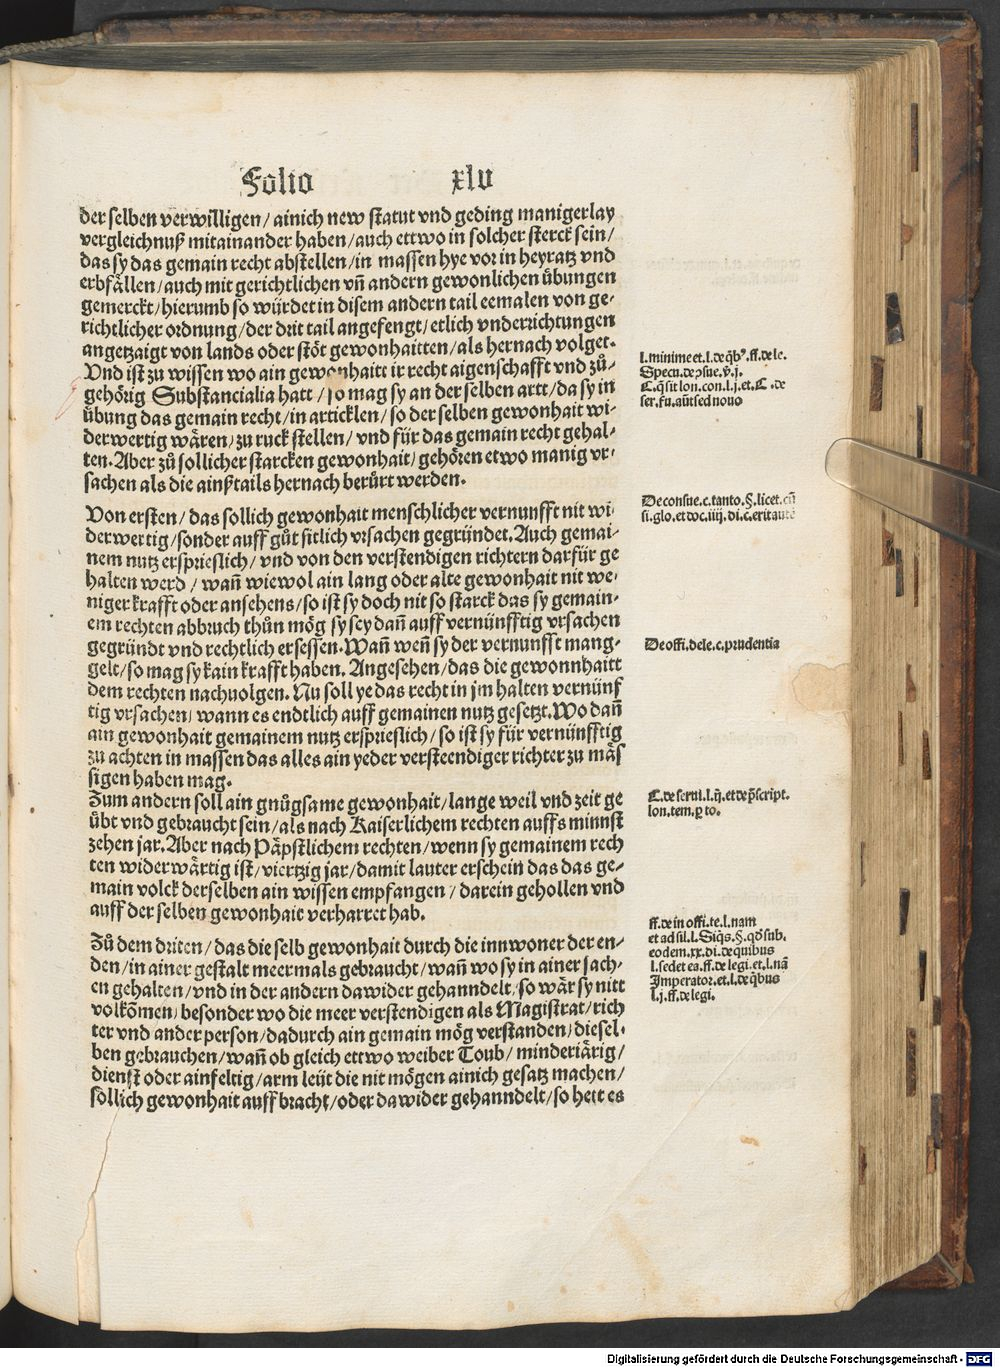 Folio xlv
der selben verwilligen/ ainich new statut vnd geding manigerlay
vergleichnuß mitainander haben/auch ettwo in solcher sterck sein/
das sy das gemain recht abstellen/in massen hye vor in heyratz vnd
erbfällen/auch mit gerichtlichen vn̄ andern gewonlichen übungen
gemerckt/hierumb so würdet in disem andern tail eemalen von ge-
richtlicher ordnung/der drit tail angefengt/etlich vnderrichtungen
angetzaigt von lands oder stöt gewonhaitten/als hernach volget.
Vnd ist zu wissen wo ain gewonhaitt ir recht aigenschafft vnd zů-
gehörig Substancialia hatt/ so mag sy an der selben artt/da sy in
übung das gemain recht/in articklen/so der selben gewonhait wi-
derwertig wären/zu ruck stellen/vnd für das gemain recht gehal-
ten. Aber zů sollicher starcken gewonhait/gehören etwo manig vr-
sachen als die ainßtails hernach berürt werden.
Von ersten/das sollich gewonhait menschlicher vernunfft nit wi-
derwertig/sonder auff gůt sitlich vrsachen gegründet. Auch gemai-
nem nutz ersprieslich/vnd von den verstendigen richtern darfür ge
halten werd/ wan̄ wiewol ain lang oder alte gewonhait nit we-
niger krafft oder ansehens/so ist sy doch nit so starck das sy gemain-
em rechten abbruch thůn mög sy sey dan̄ auff vernünfftig vrsachen
gegründt vnd rechtlich ersessen. Wan̄ wen̄ sy der vernunfft mang-
gelt/so mag sy kain krafft haben. Angesehen/das die gewonnhaitt
dem rechten nachuolgen. Nu soll ye das recht in jm halten vernünf
tig vrsachen/wann es endtlich auff gemainen nutz gesetzt. Wo dan̄
ain gewonhait gemainem nutz ersprieslich/so ist sy für vernünfftig
zu achten in massen das alles ain yeder versteendiger richter zu mäs
sigen haben mag.
Zum andern soll ain gnůgsame gewonhait/lange weil vnd zeit ge
übt vnd gebraucht sein/als nach Kaiserlichem rechten auffs minnst
zehen jar. Aber nach Päpstlichem rechten/wenn sy gemainem rech
ten widerwärtig ist/viertzig jar/damit lauter erschein das das ge-
main volck derselben ain wissen empfangen/ darein gehollen vnd
auff der selben gewonhait verharret hab.
Zů dem driten/das die selb gewonhait durch die innwoner der en-
den/in ainer gestalt meermals gebraucht/wan̄ wo sy in ainer sach-
en gehalten/vnd in der andern dawider gehanndelt/so wär sy nitt
volkōmen/besonder wo die meer verstendigen als Magistrat/rich
ter vnd ander person/dadurch ain gemain mög verstanden/diesel-
ben gebrauchen/wan̄ ob gleich ettwo weiber Toub/ minderiärig/
dienst oder ainfeltig/arm leüt die nit mögen ainich gesatz machen/
sollich gewonhait auffbracht/oder dawider gehanndelt/so hett es
l. minime et. l. de q̄bꝰ. ff. de le.
Specu. de ↄsue. v̄. j.
C. q̄ sit lon. con. l. j. et. C. de
ser. fu. aūt sed nouo
De consue. c. tanto. §. licet. cū
si. glo. et doc. iiij. di. c. erit autē
De offi. dele. c. prudentia
C. de serui. l. ij. et de p̄script.
lon. tem. ꝑ to.
ff. de in offi. te. l. nam
et ad sil. l. Siqs. §. qđ sub.
eodem. xx. di. de quibus
l. sed et ea. ff. de legi. et. l. nā
Imperator. et. l. de q̄bus
l. j. ff. de legi.
Digitalisierung gefördert durch die Deutsche Forschungsgemeinschaft - DFG